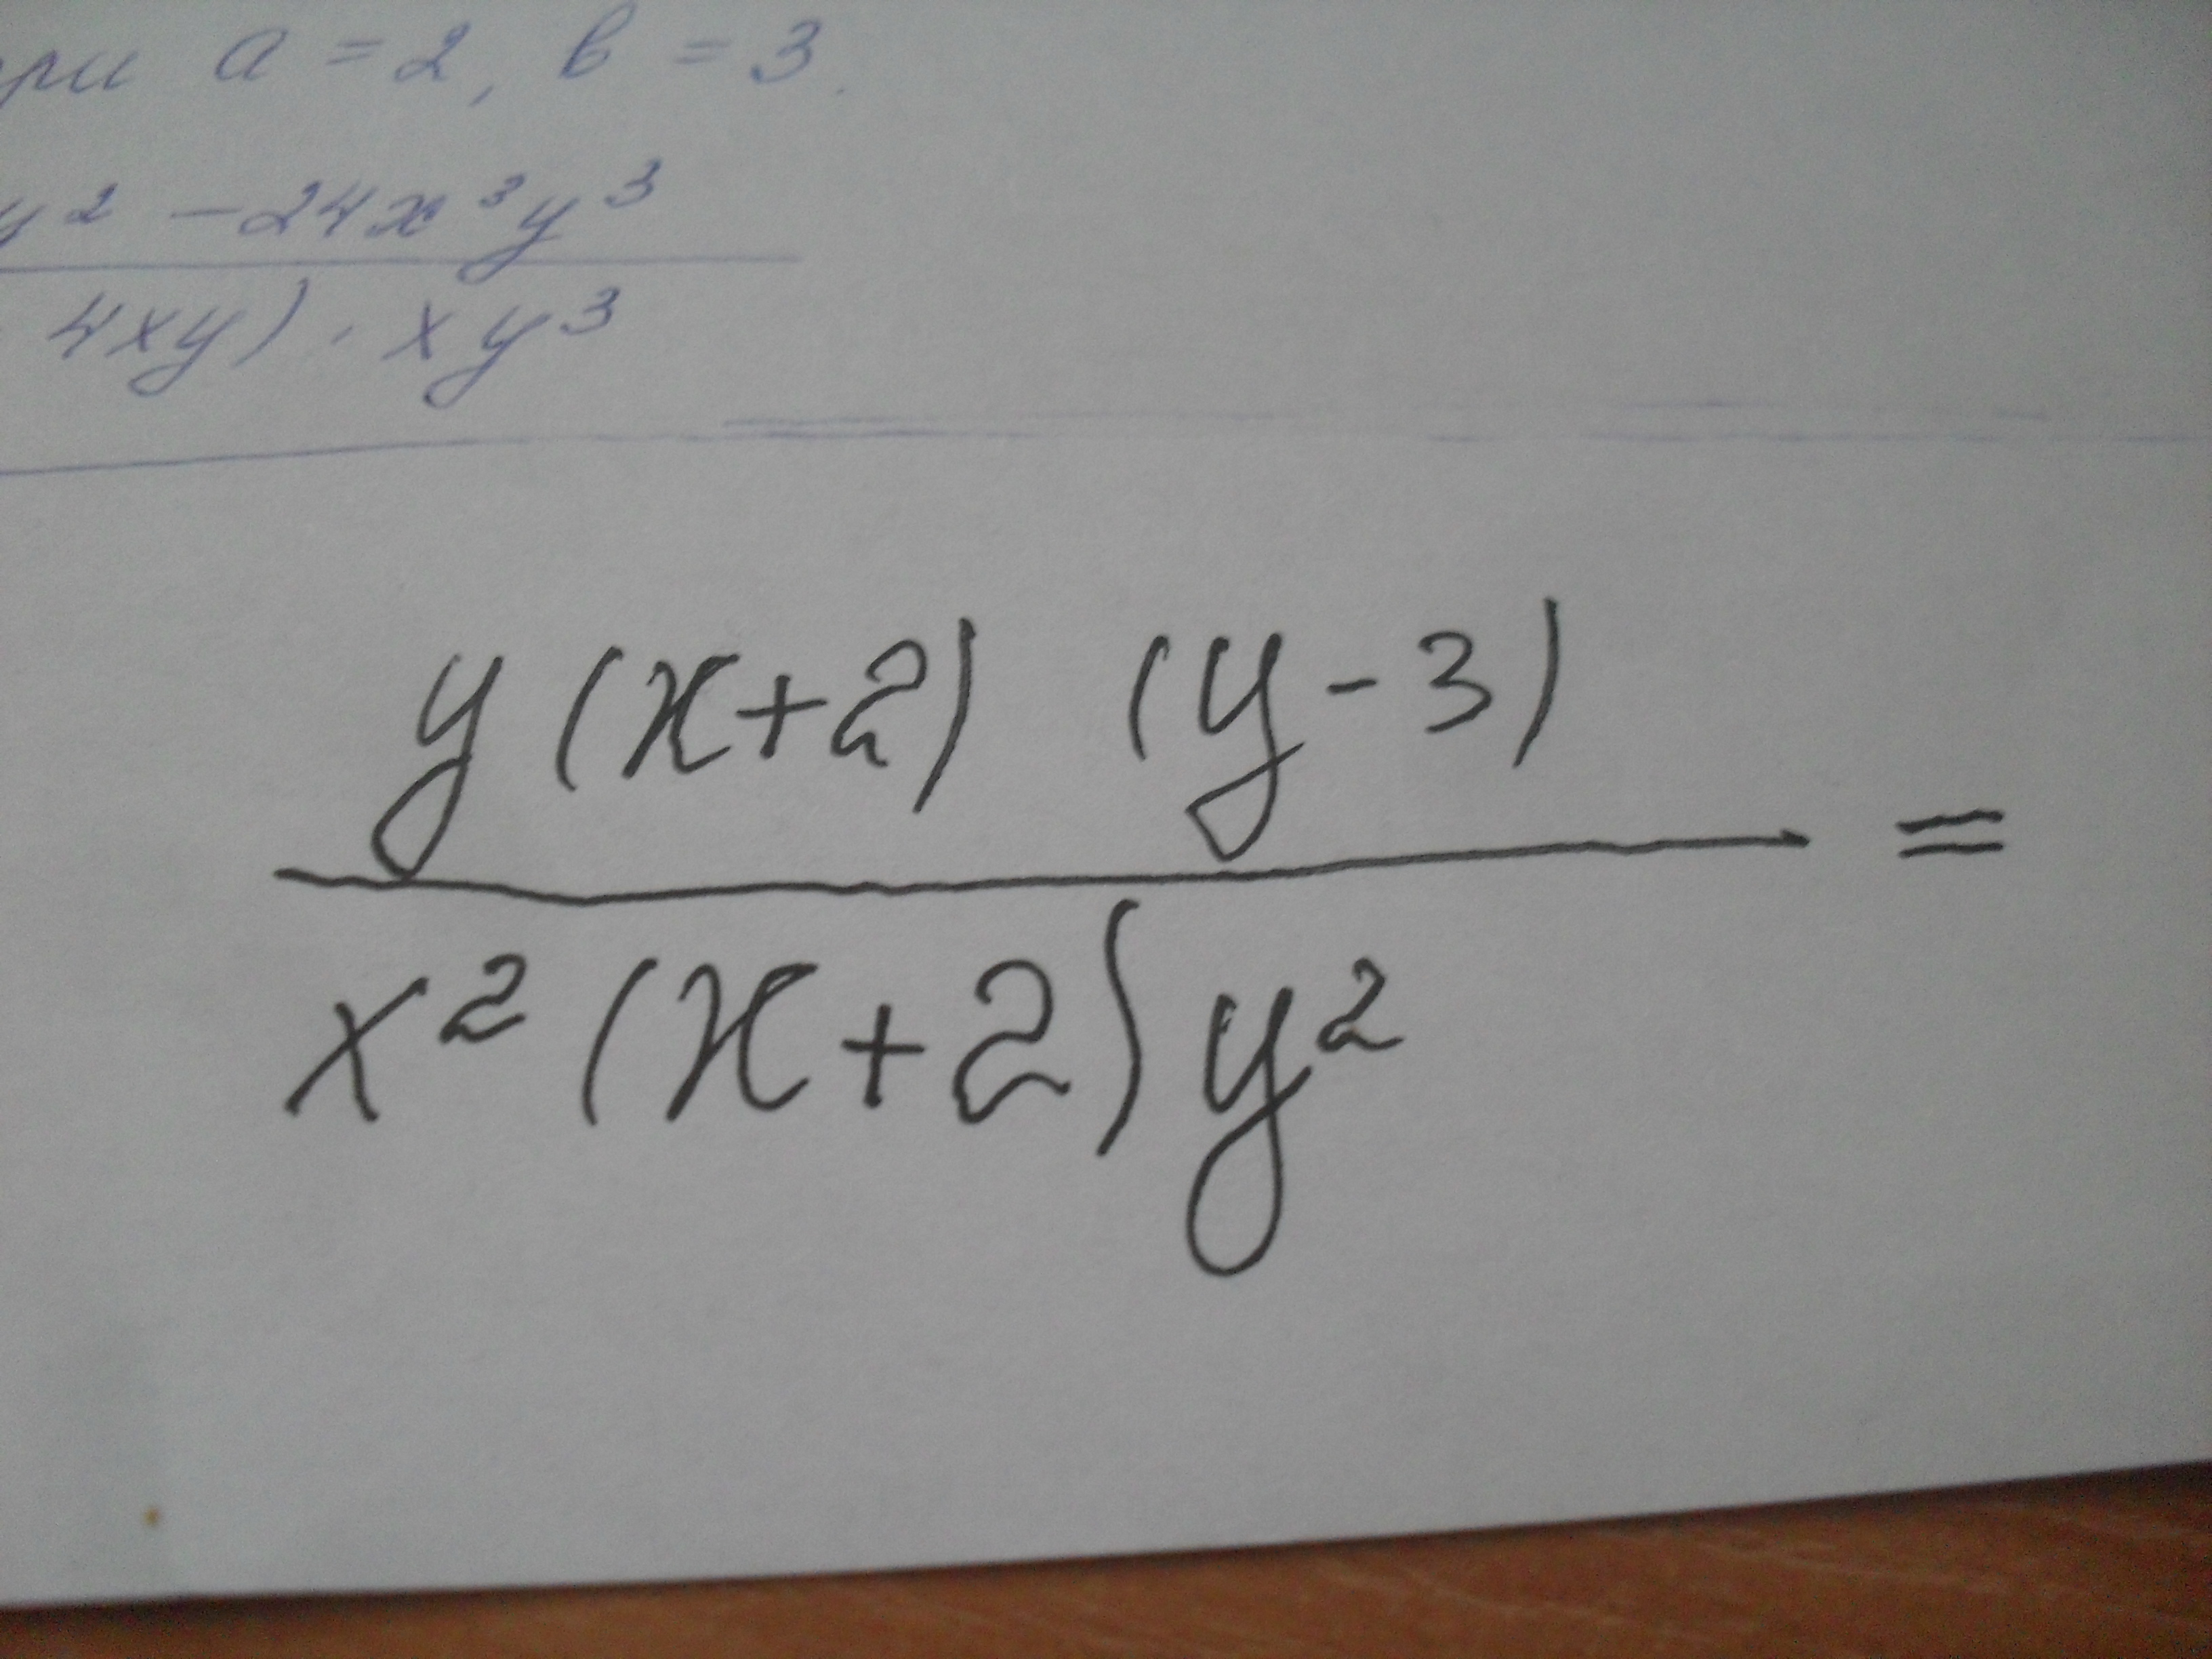 при a = 2, в = 3.
y² - 24x³y³
4xy) · xy³
y (x+2) (y-3)
=
x² (x+2) y²